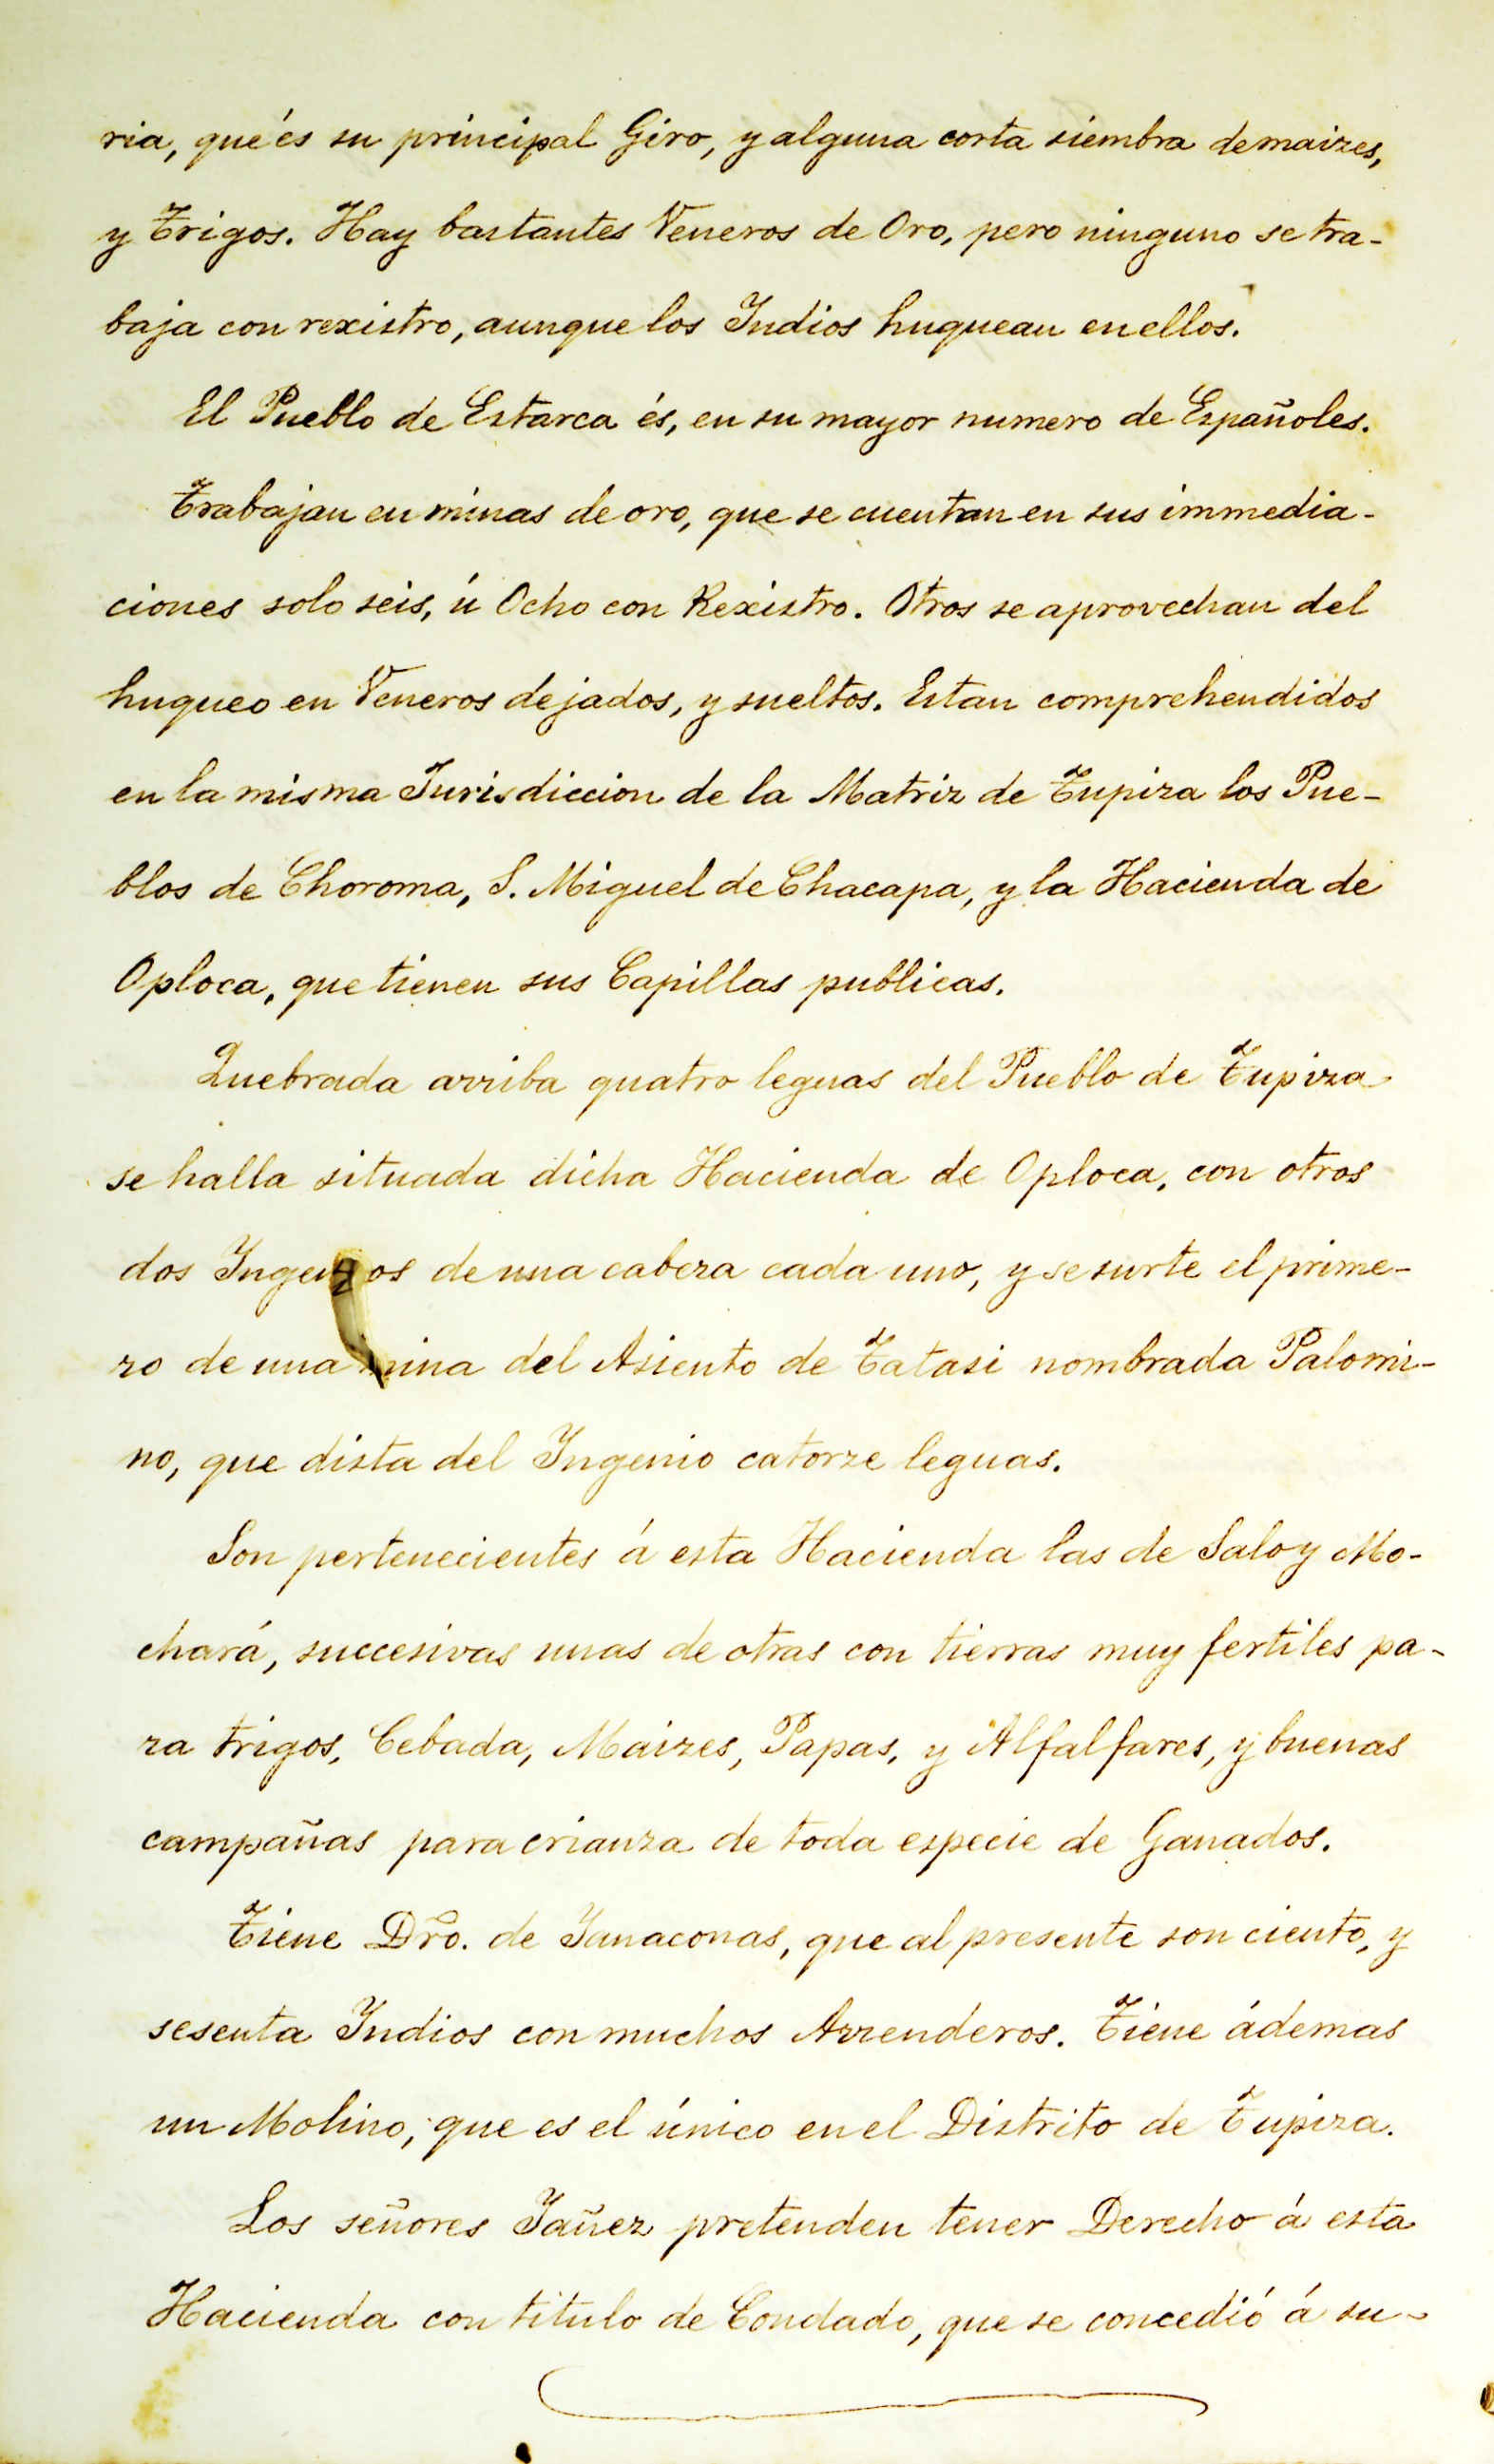 ria, que és su principal Giro, y alguna corta siembra de maizes,
y Trigos. Hay bastantes Veneros de Oro, pero ninguno se tra-
baja con rexistro, aunque los Indios huquean en ellos.
El Pueblo de Estarca és, en su mayor numero de Españoles.
Trabajan en minas de oro, que se cuentan en sus immedia-
ciones solo seis, ú Ocho con Rexistro. Otros se aprovechan del
huqueo en Veneros dejados, y sueltos. Estan comprehendidos
en la misma Jurisdiccion de la Matriz de Tupiza los Pue-
blos de Choroma, S. Miguel de Chacapa, y la Hacienda de
Oploca, que tienen sus Capillas publicas.
Quebrada arriba quatro leguas del Pueblo de Tupiza
se halla situada dicha Hacienda de Oploca, con otros
dos Ingenios de una cabeza cada uno, y se surte el prime-
ro de una mina del Asiento de Tatasi nombrada Palomi-
no, que dista del Ingenio catorze leguas.
Son pertenecientes á esta Hacienda las de Salo y Mo-
chará, succesivas unas de otras con tierras muy fertiles pa-
ra trigos, Cebada, Maizes, Papas, y Alfalfares, y buenas
campañas para crianza de toda especie de Ganados.
Tiene Dro. de Yanaconas, que al presente son ciento, y
sesenta Indios con muchos Arrenderos. Tiene ádemas
un Molino, que es el único en el Distrito de Tupiza.
Los señores Yañez pretenden tener Derecho á esta
Hacienda con titulo de Condado, que se concedió á su-